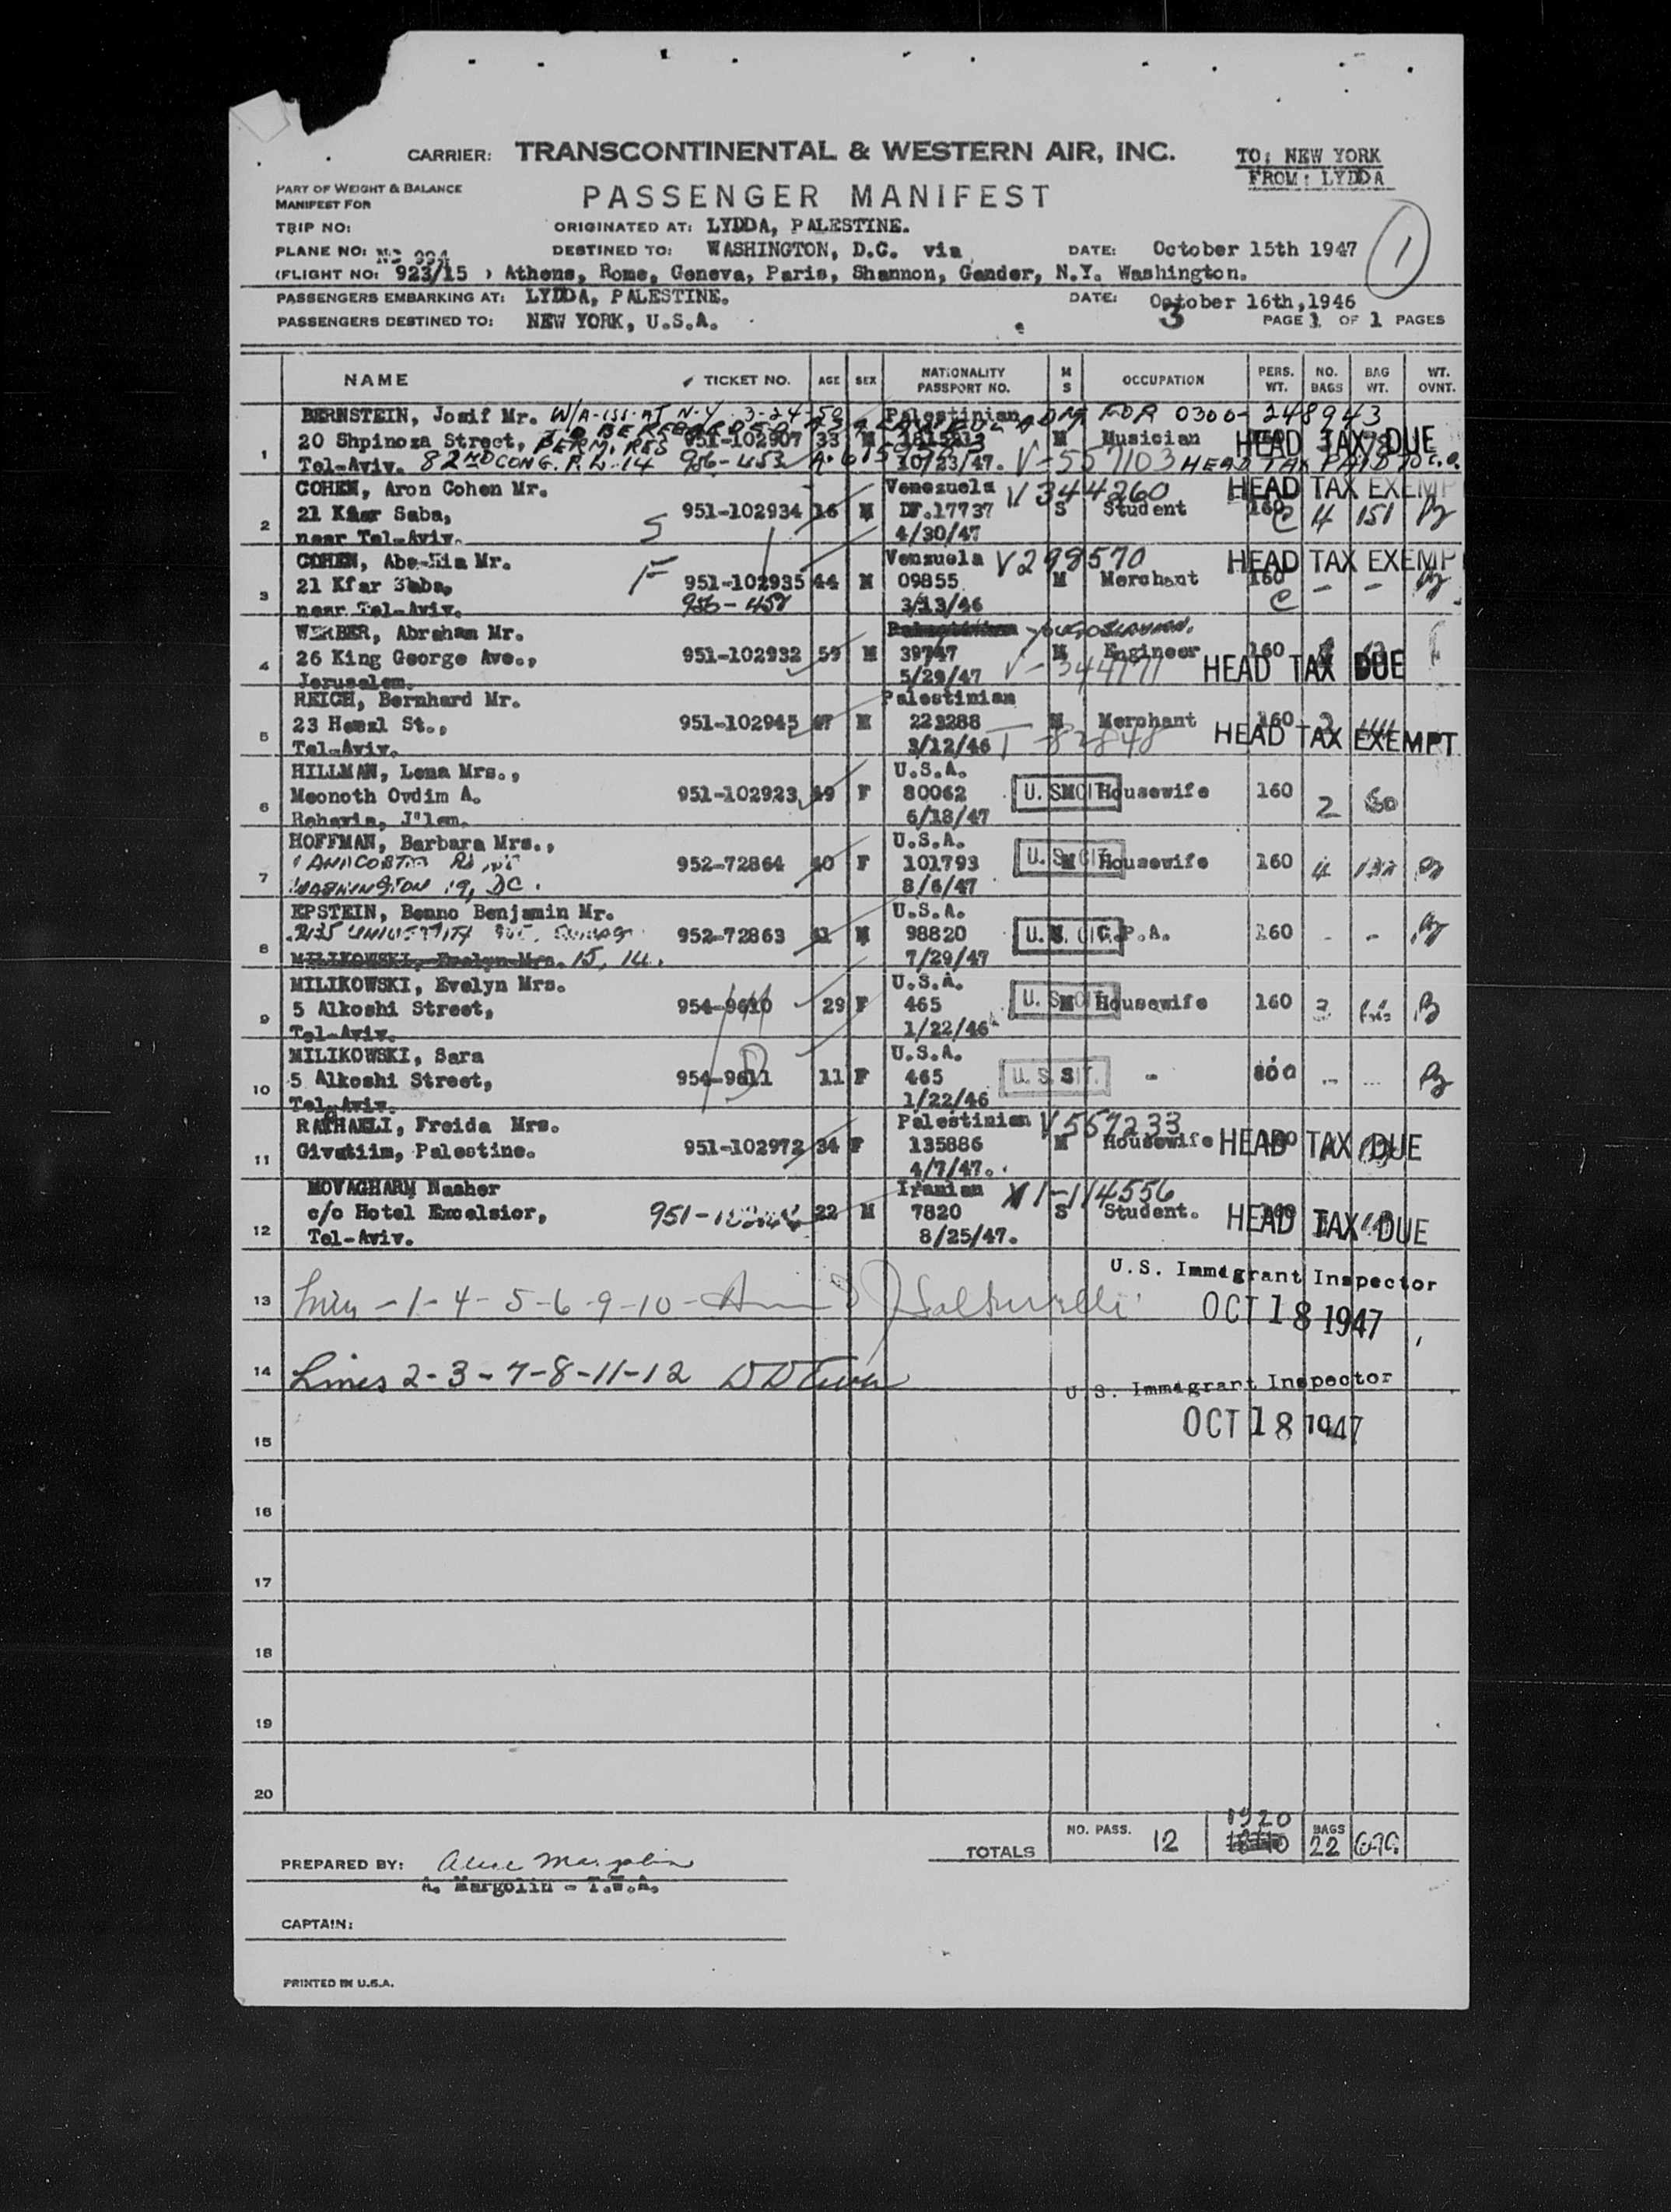 CARRIER: TRANSCONTINENTAL & WESTERN AIR, INC.
TO: NEW YORK
FROM: LYDDA
PART OF WEIGHT & BALANCE
MANIFEST FOR
PASSENGER MANIFEST
TRIP NO:
ORIGINATED AT: LYDDA, PALESTINE.
PLANE NO: NC 994
DESTINED TO: WASHINGTON, D.C. via
DATE: October 15th 1947
1
(FLIGHT NO: 923/15 ) Athens, Rome, Geneva, Paris, Shannon, Gander, N.Y. Washington.
PASSENGERS EMBARKING AT: LYDDA, PALESTINE.
DATE: October 16th,1946
PASSENGERS DESTINED TO: NEW YORK, U.S.A.
3
PAGE 1 OF 1 PAGES
NAME TICKET NO. AGE SEX NATIONALITY PASSPORT NO. M S OCCUPATION PERS. WT. NO. BAGS BAG WT. WT. OVNT.
BERNSTEIN, Josif Mr. W/A-ISS-AT N-Y 3-24-52 Palestinian ADM FOR 0300- 248943
20 Shpinoza Street, PERM. RES 951-102907 33 M M Musician HEAD TAX DUE
1 Tel-Aviv. 82ND CONG. P.L-14 956-453 10/23/47. V-557103 HEAD TAX PAID
COHEN, Aron Cohen Mr. Venezuela V344260 HEAD TAX EXEMP
2 21 Kfar Saba, 951-102934 16 M DF.17737 S Student 160 C 4 151
near Tel-Aviv. S 4/30/47
COHEN, Mr. Venzuela V298570 HEAD TAX EXEMP
3 21 Kfar Saba, F 951-102935 44 M 09855 M Merchant 160 C - -
near Tel-Aviv. 956-458 3/13/46
WERBER, Abraham Mr. YUGOSLAVIAN.
4 26 King George Ave., 951-102932 59 M 39747 M Engineer 160
Jerusalem. 5/29/47 V-344771 HEAD TAX DUE
REICH, Bernhard Mr. Palestinian
5 23 Herzl St., 951-102945 47 M 223288 M Merchant 160
Tel-Aviv. 3/12/46 T-82848 HEAD TAX EXEMPT
HILLMAN, Lena Mrs., U.S.A.
6 Meonoth Ovdim A. 951-102923 49 F 80062 U. S. CIT. M Housewife 160 2 60
Rehavia, J'lem. 6/18/47
HOFFMAN, Barbara Mrs., U.S.A.
7 952-72864 40 F 101793 U. S. CIT. M Housewife 160 4 132
WASHINGTON 19, DC. 8/6/47
EPSTEIN, Benno Benjamin Mr. U.S.A.
8 952-72863 M 98820 U. S. CIT. C.P.A. 160 - -
MILIKOWSKI, Evelyn Mrs. 7/29/47
MILIKOWSKI, Evelyn Mrs. U.S.A.
9 5 Alkoshi Street, 954-9610 29 F 465 U. S. CIT. M Housewife 160
Tel-Aviv. 1/22/46
MILIKOWSKI, Sara U.S.A.
10 5 Alkoshi Street, 954-9611 11 F 465 U. S. CIT. S -
Tel-Aviv. 1/22/46
RAPHAELI, Freida Mrs. Palestinian V557233
11 Givatiim, Palestine. 951-102972 34 F 135886 M Housewife HEAD TAX DUE
4/7/47.
MOVAGHARM Nasher Iranian V1-114556
12 c/o Hotel Excelsior, 22 M 7820 S Student. HEAD TAX DUE
Tel-Aviv. 8/25/47.
U.S. Immigrant Inspector
13 -1-4-5-6-9-10- OCT 18 1947
14 Lines 2-3-7-8-11-12
U.S. Immigrant Inspector
OCT 18 1947
15
16
17
18
19
20
TOTALS NO. PASS. 12 1920 BAGS 22
PREPARED BY:
A. Margolin - T.W.A.
CAPTAIN:
PRINTED IN U.S.A.